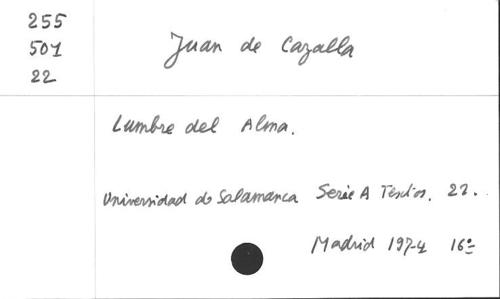 255
501
22
Juan de Cazalla
Lumbre del Alma.
Universidad de Salamanca Serie A Textos. 22.
Madrid 1974 16º